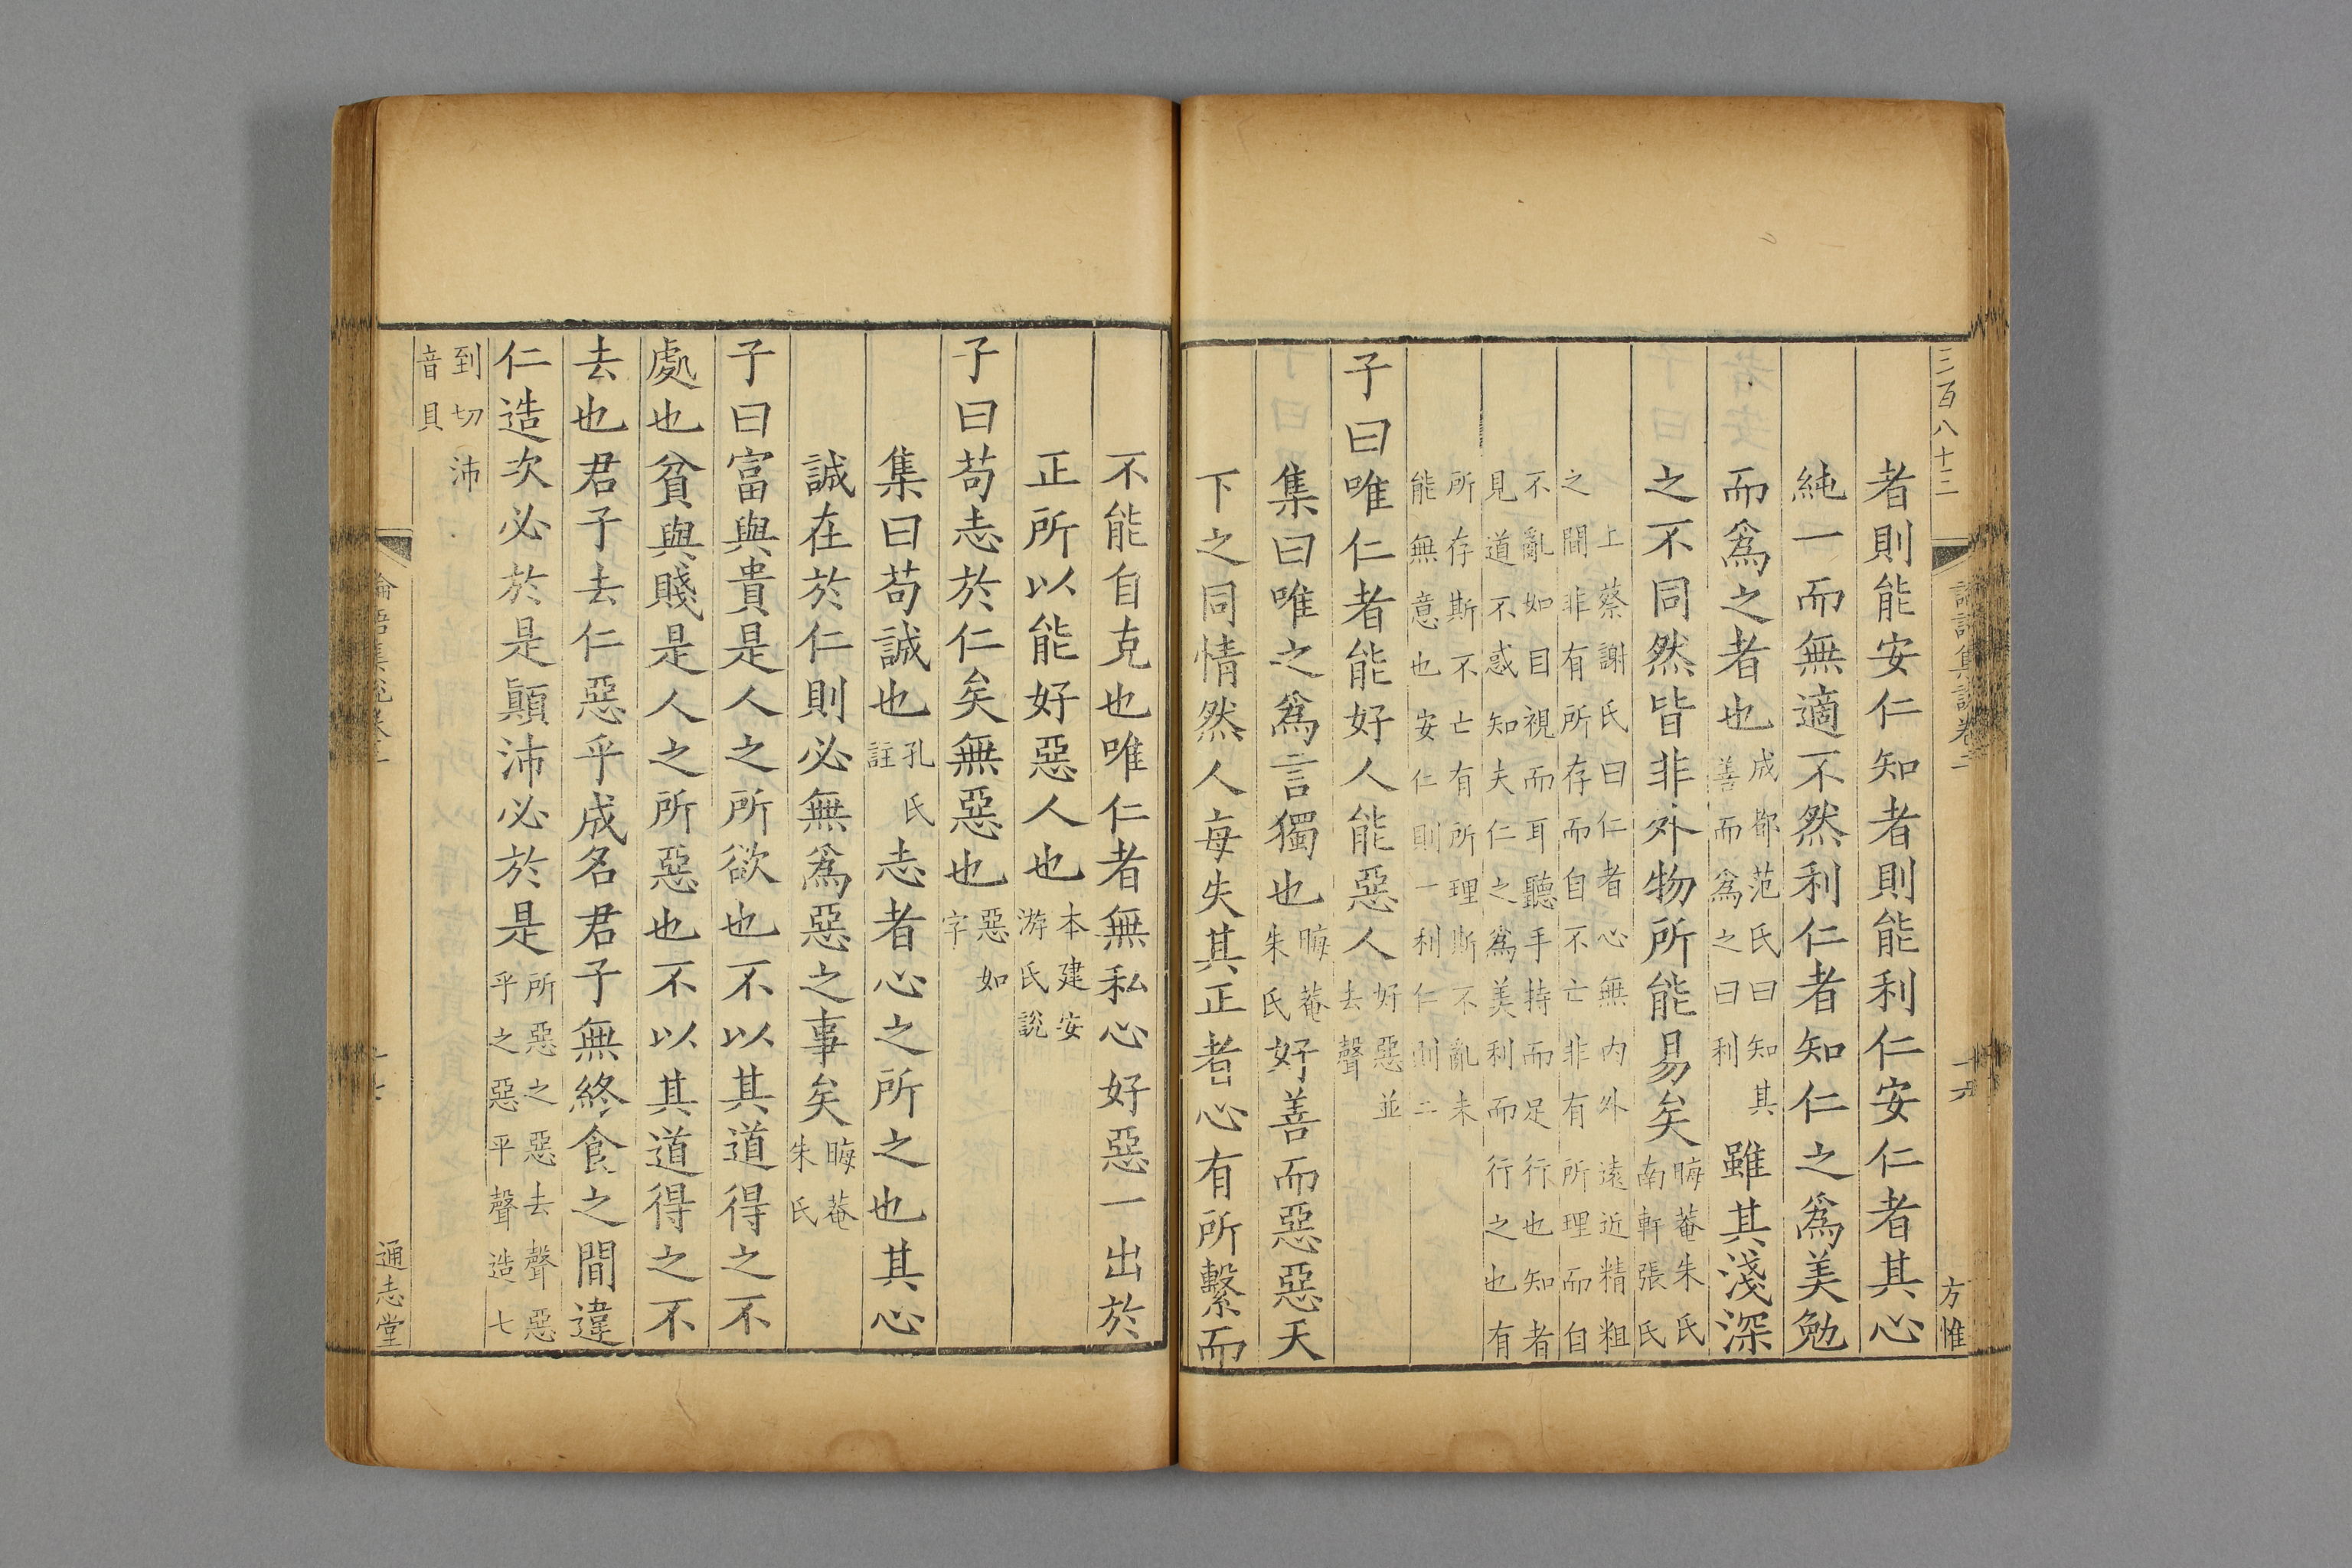 三百八十二
論語集說卷二
十六
方惟
者則能安仁知者則能利仁安仁者其心
純一而無適不然利仁者知仁之爲美勉
而爲之者也
成都范氏曰知其
善而爲之曰利
雖其淺深
之不同然皆非外物所能易矣
晦菴朱氏
南軒張氏
上蔡謝氏曰仁者心無內外遠近精粗
之間非有所存而自不亡非有所理而自
不亂如目視而耳聽手持而足行也知者
見道不惑知夫仁之爲美利而行之也有
所存斯不亡有所理斯不亂未
能無意也安仁則一利仁則二
子曰唯仁者能好人能惡人
好惡並
去聲
集曰唯之爲言獨也
晦菴
朱氏
好善而惡惡天
下之同情然人每失其正者心有所繫而
不能自克也唯仁者無私心好惡一出於
正所以能好惡人也
本建安
游氏說
子曰苟志於仁矣無惡也
惡如
字
集曰苟誠也
孔氏
註
志者心之所之也其心
誠在於仁則必無爲惡之事矣
晦菴
朱氏
子曰富與貴是人之所欲也不以其道得之不
處也貧與賤是人之所惡也不以其道得之不
去也君子去仁惡乎成名君子無終食之間違
仁造次必於是顚沛必於是
所惡之惡去聲惡
乎之惡平聲造七
到切沛
音貝
論語集說卷二
通志堂